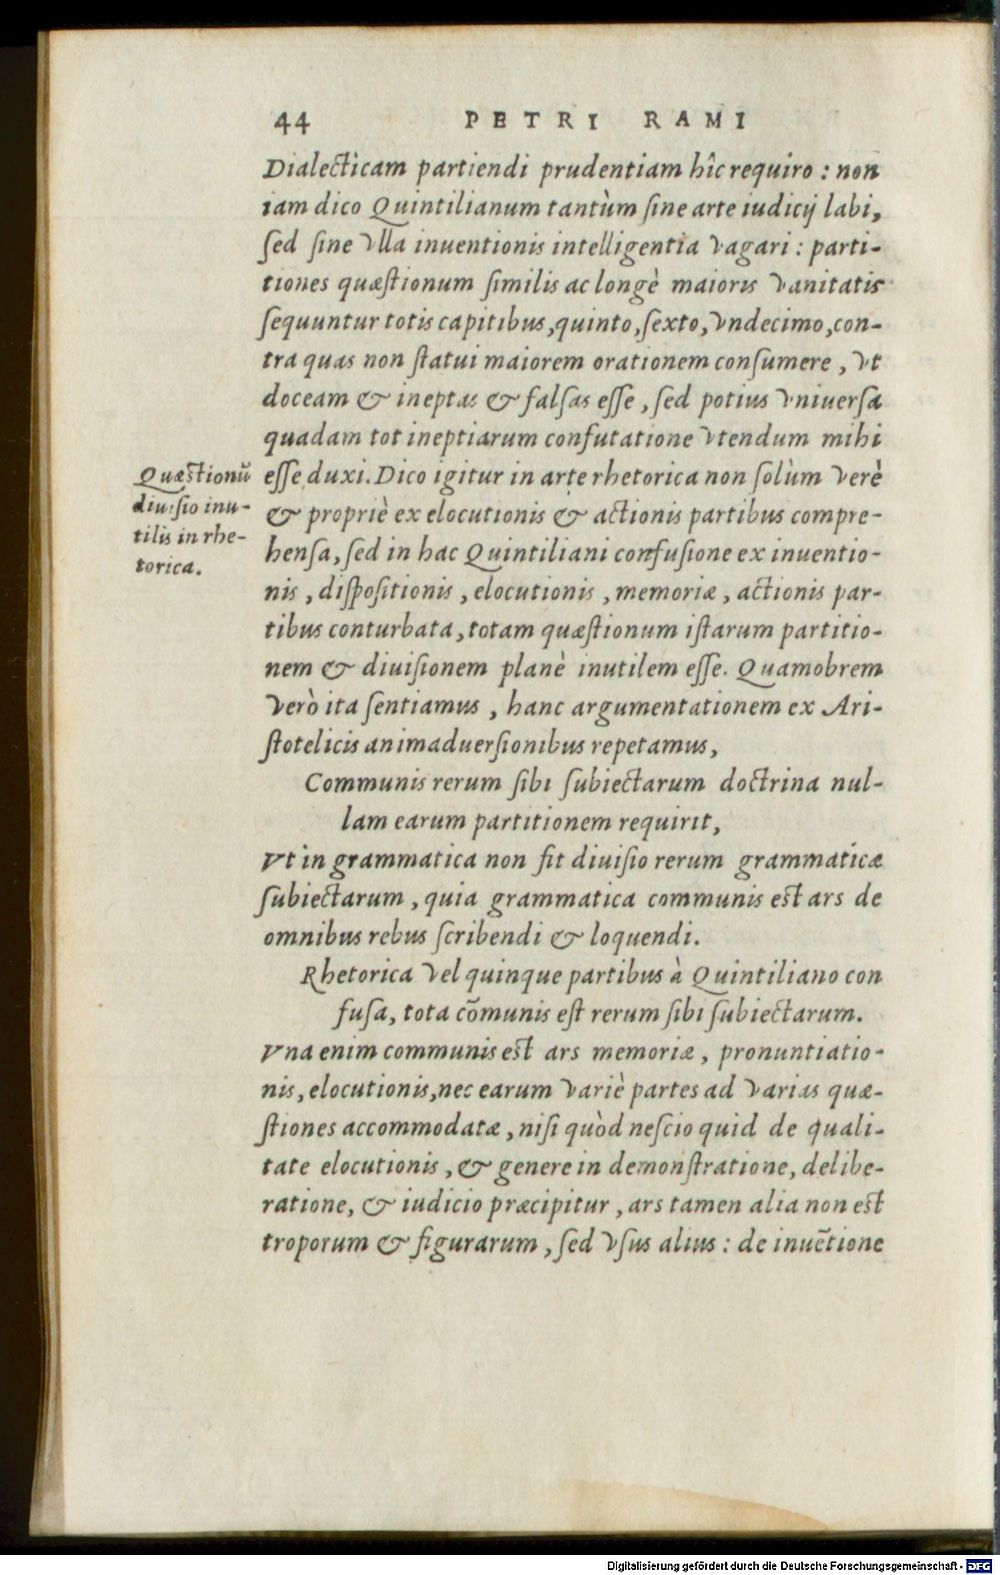 44 PETRI RAMI
Dialecticam partiendi prudentiam hîc requiro : non
iam dico Quintilianum tantùm ſine arte iudicij labi,
ſed ſine vlla inuentionis intelligentia vagari : parti-
tiones quæſtionum ſimilis ac longè maioris vanitatis
ſequuntur totis capitibus, quinto, ſexto, vndecimo, con-
tra quas non ſtatui maiorem orationem conſumere , vt
doceam & ineptas & falſas eſſe , ſed potius vniuerſa
quadam tot ineptiarum confutatione vtendum mihi
eſſe duxi. Dico igitur in arte rhetorica non ſolùm verè
& propriè ex elocutionis & actionis partibus compre-
henſa, ſed in hac Quintiliani confuſione ex inuentio-
nis , diſpoſitionis , elocutionis , memoriæ , actionis par-
tibus conturbata, totam quæſtionum iſtarum partitio-
nem & diuiſionem planè inutilem eſſe. Quamobrem
verò ita ſentiamus , hanc argumentationem ex Ari-
ſtotelicis animaduerſionibus repetamus,
Communis rerum ſibi ſubiectarum doctrina nul-
lam earum partitionem requirit,
Vt in grammatica non fit diuiſio rerum grammaticæ
ſubiectarum , quia grammatica communis est ars de
omnibus rebus ſcribendi & loquendi.
Rhetorica vel quinque partibus à Quintiliano con
fuſa, tota cōmunis eſt rerum ſibi ſubiectarum.
Vna enim communis est ars memoriæ , pronuntiatio-
nis, elocutionis, nec earum variè partes ad varias quæ-
ſtiones accommodatæ , niſi quòd neſcio quid de quali-
tate elocutionis , & genere in demonſtratione, delibe-
ratione, & iudicio præcipitur , ars tamen alia non est
troporum & figurarum , ſed vſus alius : de inuētione
Quæstionū
diuiſio inu-
tilis in rhe-
torica.
Digitalisierung gefördert durch die Deutsche Forschungsgemeinschaft - DFG